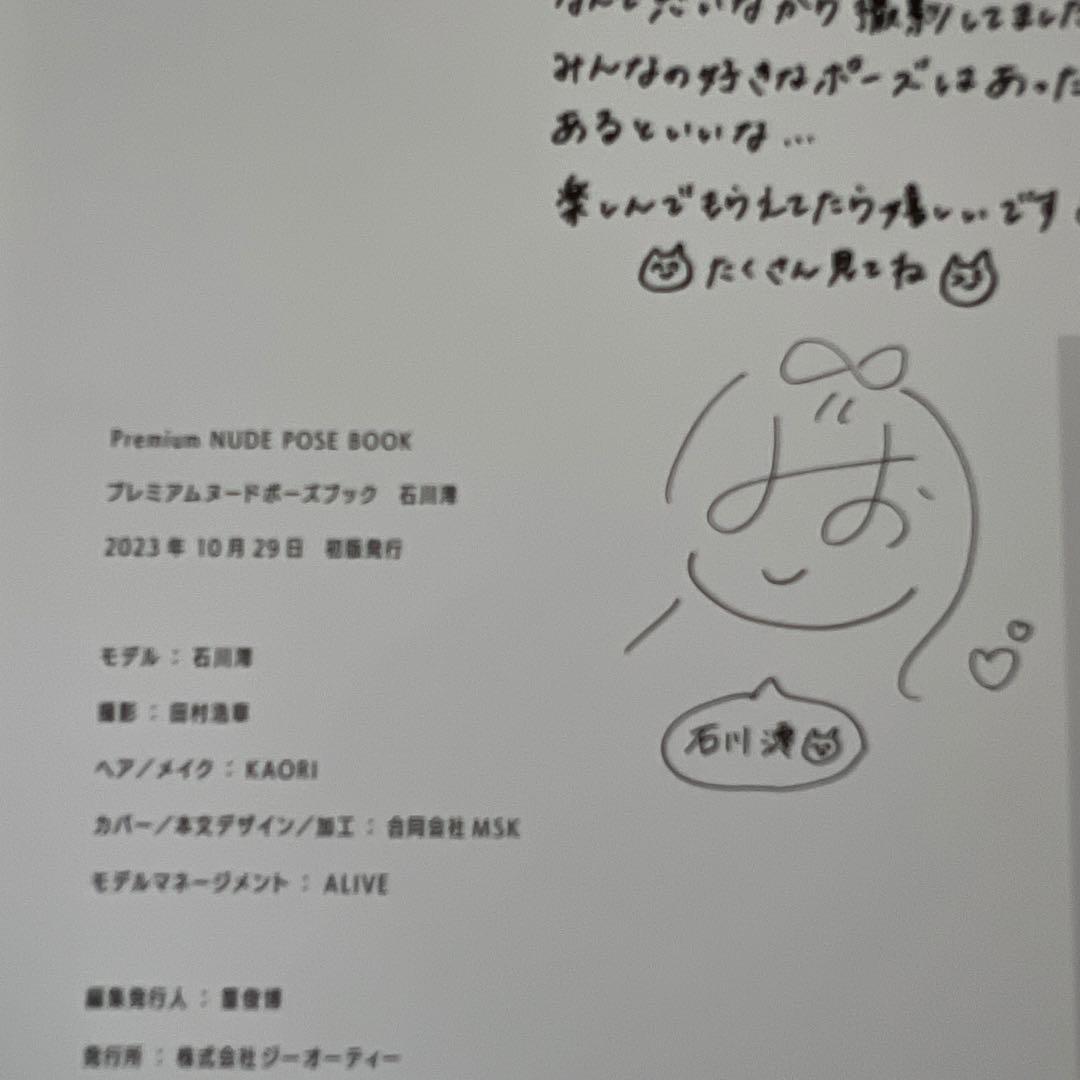 撮影してました
みんなの好きなポーズはあった
あるといいな…
楽しんでもらえてたら嬉しいです
たくさん見てね
みお
石川澪
Premium NUDE POSE BOOK
プレミアムヌードポーズブック 石川澪
2023年10月29日 初版発行
モデル：石川澪
撮影：田村浩章
ヘア/メイク：KAORI
カバー/本文デザイン/加工：合同会社MSK
モデルマネージメント：ALIVE
編集発行人：俊博
発行所：株式会社ジーオーティー